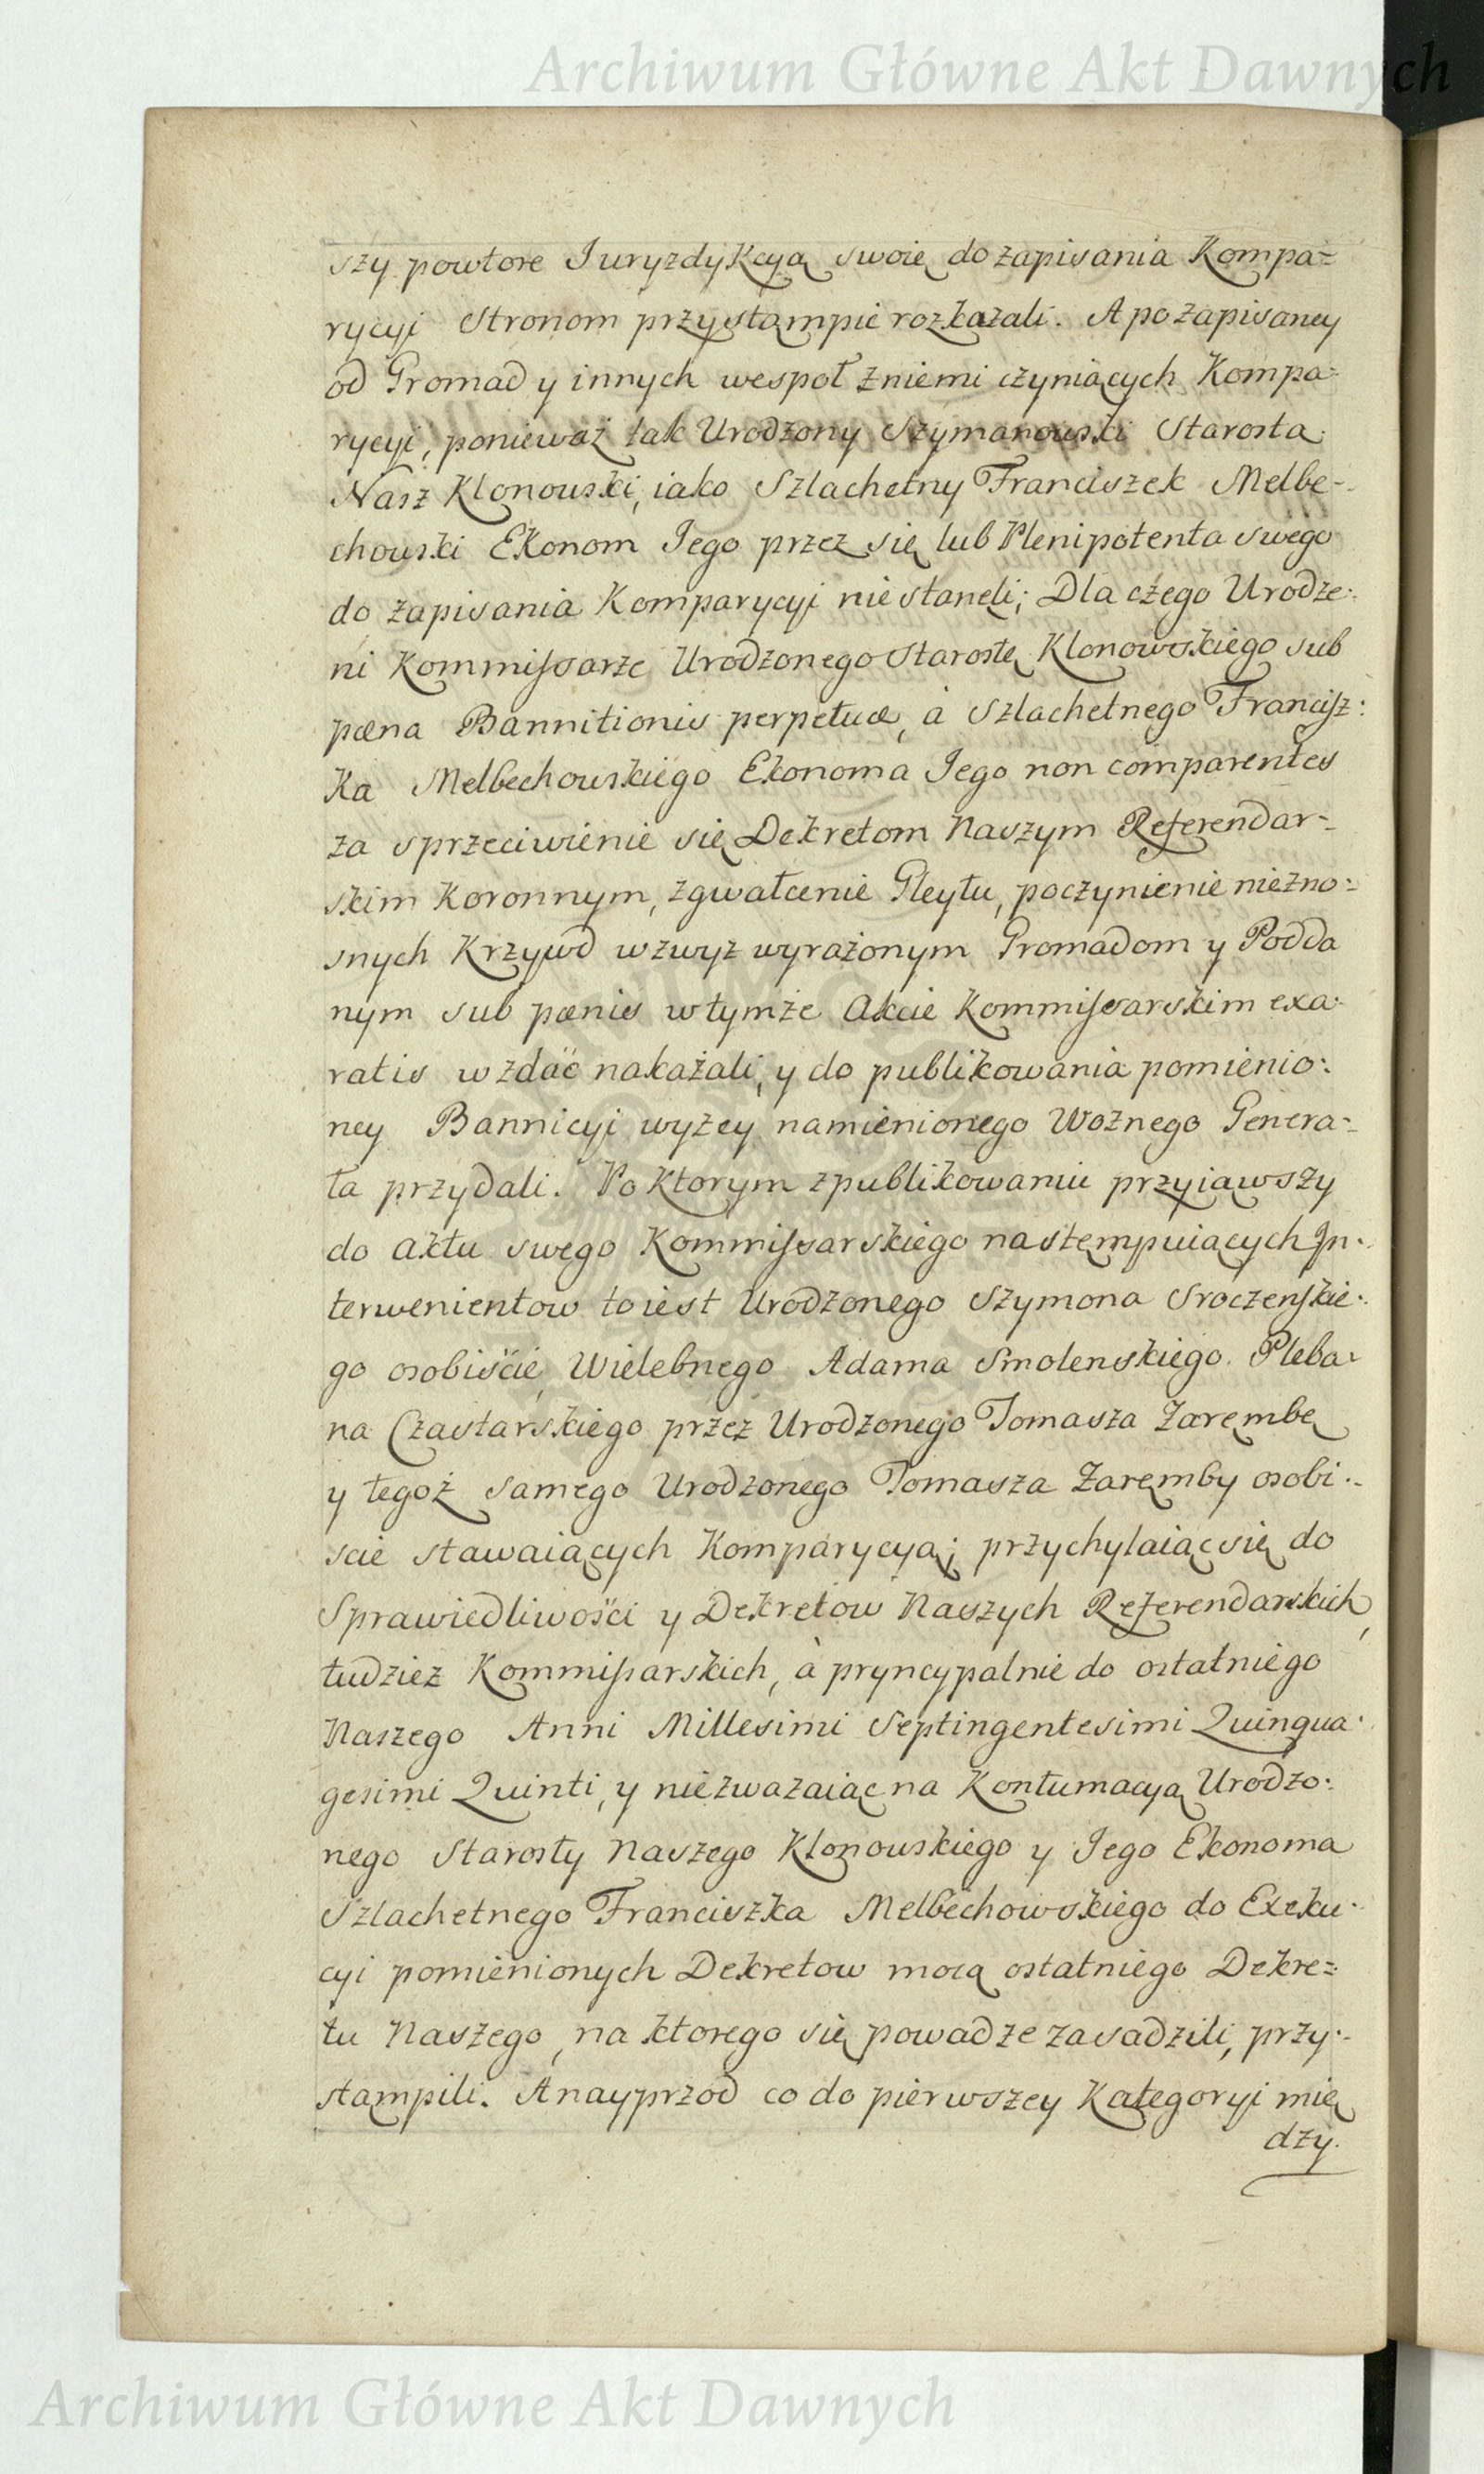 Archiwum Główne Akt Dawnych
szy powtore Juryzdykcyą swoię do zapisania Kompa=
rycyi Stronom przystąmpić rozkazali. A po zapisaney
od Gromad y innych wespoł z niemi czyniących Kompa=
rycyi, ponieważ tak Urodzony Szymanowski Starosta
Nasz Klonowski, iako Szlachetny Franciszek Melbe-
chowski Ekonom Jego przez się lub Plenipotenta swego
do zapisania Komparycyi nie staneli; Dla czego Urodze:
ni Kommissarze Urodzonego Starostę Klonowskiego sub
pæna Bannitionis perpetuæ, à Szlachetnego Francisz:
ka Melbechowskiego Ekonoma Jego non comparentes
za sprzeciwienie się Dekretom Naszym Referendar-
skim Koronnym, zgwałcenie Gleytu, poczynienie niezno:
snych Krzywd wzwyż wyrażonym Gromadom y Podda
nym sub pænis w tymże Akcie Kommissarskim exa:
ratis wzdać nakazali, y do publikowania pomienio:
ney Bannicyi wyżey namienionego Woznego Genera-
ła przydali. Po ktorym zpublikowaniu przyiąwszy
do aktu swego Kommissarskiego następuiących In:
terwenientow to iest Urodzonego Szymona Sroczeńskie:
go osobiście, Wielebnego Adama Smolenskiego Pleba:
na Czastarskiego przez Urodzonego Tomasza Zarembę
y tegoż samego Urodzonego Tomasza Zaręmby osobi:
scie stawaiących Komparycyą; przychylaiąc się do
Sprawiedliwości y Dekretow Naszych Referendarskich,
tudzież Kommissarskich, à pryncypalnie do ostatniego
Naszego Anni Millesimi Septingentesimi Quinqua:
gesimi Quinti, y nie zważaiąc na Kontumacyą Urodzo:
nego Starosty Naszego Klonowskiego y Jego Ekonoma
Szlachetnego Franciszka Melbechowskiego do Exeku:
cyi pomienionych Dekretow mocą ostatniego Dekre=
tu Naszego, na ktorego się powadze zasadzili, przy:
stąmpili. A nayprzod co do pierwszey Kategoryi mię
dzy.
Archiwum Główne Akt Dawnych